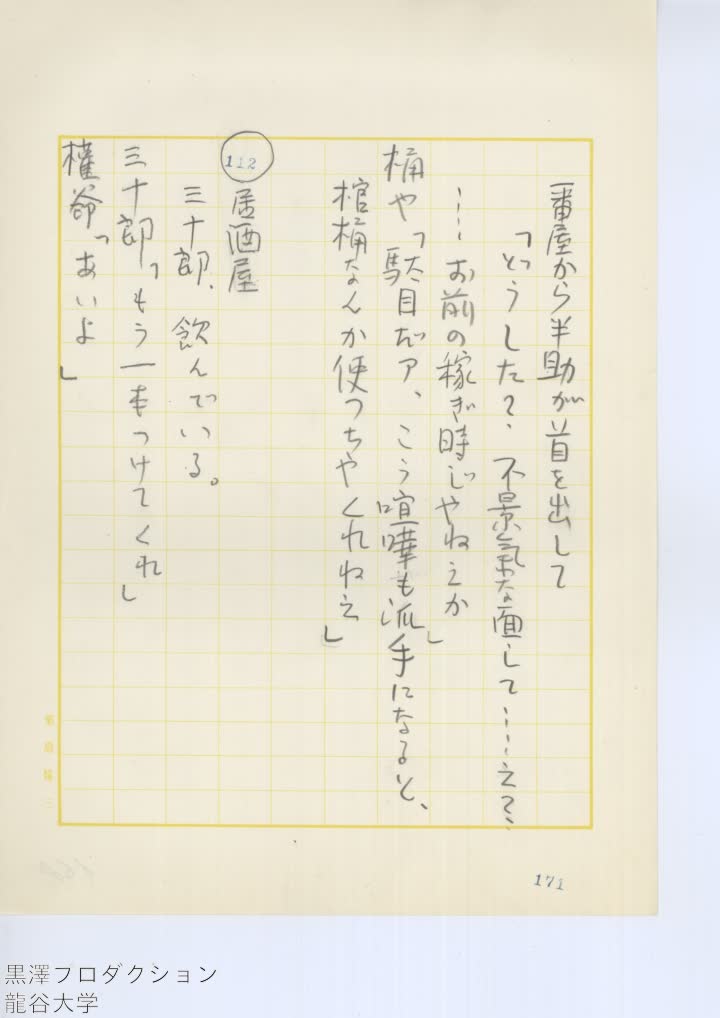 一番屋から半助が首を出して
「どうした?、不景氣な面して……え?、
……お前の稼ぎ時じやねえか」
桶や「駄目だア、こう喧嘩も派手になると、
棺桶なんか使つちやくれねえ」
112
居酒屋
三十郎、飲んでいる。
三十郎「もう一本つけてくれ」
権爺「あいよ」
171
黒澤プロダクション
龍谷大学